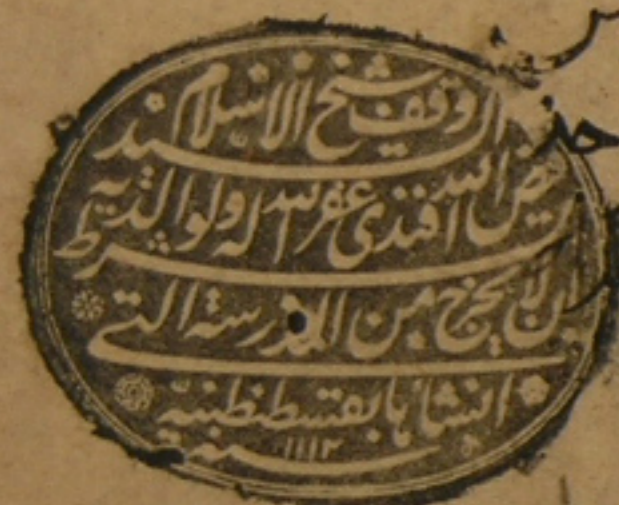 وقف شيخ الاسلام السيد
فيض الله افندى غفر الله له ولوالديه بشرط
ان لا يخرج من المدرسة التى
انشاها بقسطنطينية
سنه ١١١٢